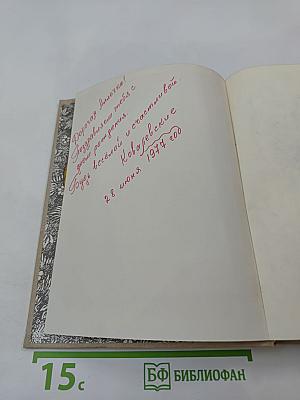 Дорогая Милочка
Поздравляем тебя с
днём рождения.
Будь весёлой и счастливой
Ковалевские
28 июня 1977 год
15 с
БФ БИБЛИОФАН